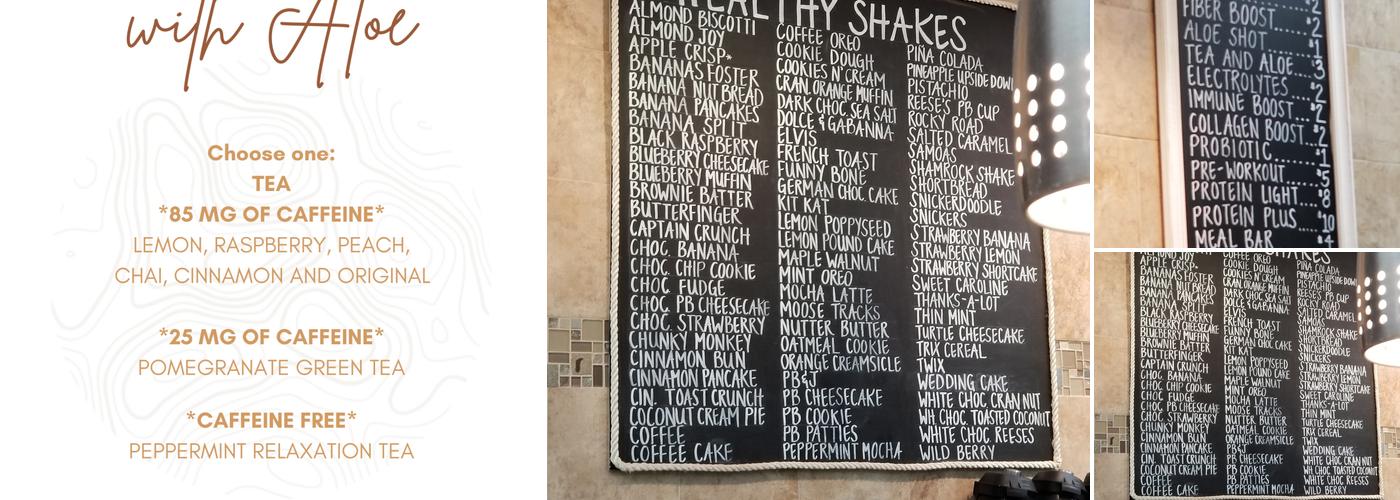 with Aloe
Choose one:
TEA
*85 MG OF CAFFEINE*
LEMON, RASPBERRY, PEACH,
CHAI, CINNAMON AND ORIGINAL
*25 MG OF CAFFEINE*
POMEGRANATE GREEN TEA
*CAFFEINE FREE*
PEPPERMINT RELAXATION TEA
HEALTHY SHAKES
ALMOND BISCOTTI
ALMOND JOY
APPLE CRISP*
BANANAS FOSTER
BANANA NUT BREAD
BANANA PANCAKES
BANANA SPLIT
BLACK RASPBERRY
BLUEBERRY CHEESECAKE
BLUEBERRY MUFFIN
BROWNIE BATTER
BUTTERFINGER
CAPTAIN CRUNCH
CHOC. BANANA
CHOC. CHIP COOKIE
CHOC. FUDGE
CHOC. PB CHEESECAKE
CHOC. STRAWBERRY
CHUNKY MONKEY
CINNAMON BUN
CINNAMON PANCAKE
CIN. TOAST CRUNCH
COCONUT CREAM PIE
COFFEE
COFFEE CAKE
COFFEE OREO
COOKIE DOUGH
COOKIES N' CREAM
CRAN. ORANGE MUFFIN
DARK CHOC. SEA SALT
DOLCE & GABANNA
ELVIS
FRENCH TOAST
FUNNY BONE
GERMAN CHOC. CAKE
KIT KAT
LEMON POPPYSEED
LEMON POUND CAKE
MAPLE WALNUT
MINT OREO
MOCHA LATTE
MOOSE TRACKS
NUTTER BUTTER
OATMEAL COOKIE
ORANGE CREAMSICLE
PB&J
PB CHEESECAKE
PB COOKIE
PB PATTIES
PEPPERMINT MOCHA
PIÑA COLADA
PINEAPPLE UPSIDE DOWN
PISTACHIO
REESE'S PB CUP
ROCKY ROAD
SALTED CARAMEL
SAMOAS
SHAMROCK SHAKE
SHORTBREAD
SNICKERDOODLE
SNICKERS
STRAWBERRY BANANA
STRAWBERRY LEMON
STRAWBERRY SHORTCAKE
SWEET CAROLINE
THANKS-A-LOT
THIN MINT
TURTLE CHEESECAKE
TRIX CEREAL
TWIX
WEDDING CAKE
WHITE CHOC CRAN NUT
WH. CHOC. TOASTED COCONUT
WHITE CHOC. REESES
WILD BERRY
FIBER BOOST....2
ALOE SHOT....1
TEA AND ALOE....3
ELECTROLYTES....2
IMMUNE BOOST...2
COLLAGEN BOOST..2
PROBIOTIC......1
PRE-WORKOUT....5
PROTEIN LIGHT...8
PROTEIN PLUS...10
MEAL BAR....4
APPLE CRISP*
BANANAS FOSTER
BANANA NUT BREAD
BANANA PANCAKES
BANANA SPLIT
BLACK RASPBERRY
BLUEBERRY CHEESECAKE
BLUEBERRY MUFFIN
BROWNIE BATTER
BUTTERFINGER
CAPTAIN CRUNCH
CHOC. BANANA
CHOC. CHIP COOKIE
CHOC. FUDGE
CHOC. PB CHEESECAKE
CHOC. STRAWBERRY
CHUNKY MONKEY
CINNAMON BUN
CINNAMON PANCAKE
CIN. TOAST CRUNCH
COCONUT CREAM PIE
COFFEE
COFFEE CAKE
COFFEE OREO
COOKIE DOUGH
COOKIES N' CREAM
CRAN. ORANGE MUFFIN
DARK CHOC. SEA SALT
DOLCE & GABANNA
ELVIS
FRENCH TOAST
FUNNY BONE
GERMAN CHOC. CAKE
KIT KAT
LEMON POPPYSEED
LEMON POUND CAKE
MAPLE WALNUT
MINT OREO
MOCHA LATTE
MOOSE TRACKS
NUTTER BUTTER
OATMEAL COOKIE
ORANGE CREAMSICLE
PB&J
PB CHEESECAKE
PB COOKIE
PB PATTIES
PEPPERMINT MOCHA
PIÑA COLADA
PINEAPPLE UPSIDE DOWN
PISTACHIO
REESE'S PB CUP
ROCKY ROAD
SALTED CARAMEL
SAMOAS
SHAMROCK SHAKE
SHORTBREAD
SNICKERDOODLE
SNICKERS
STRAWBERRY BANANA
STRAWBERRY LEMON
STRAWBERRY SHORTCAKE
SWEET CAROLINE
THANKS-A-LOT
THIN MINT
TURTLE CHEESECAKE
TRIX CEREAL
TWIX
WEDDING CAKE
WHITE CHOC CRAN NUT
WH. CHOC. TOASTED COCONUT
WHITE CHOC. REESES
WILD BERRY